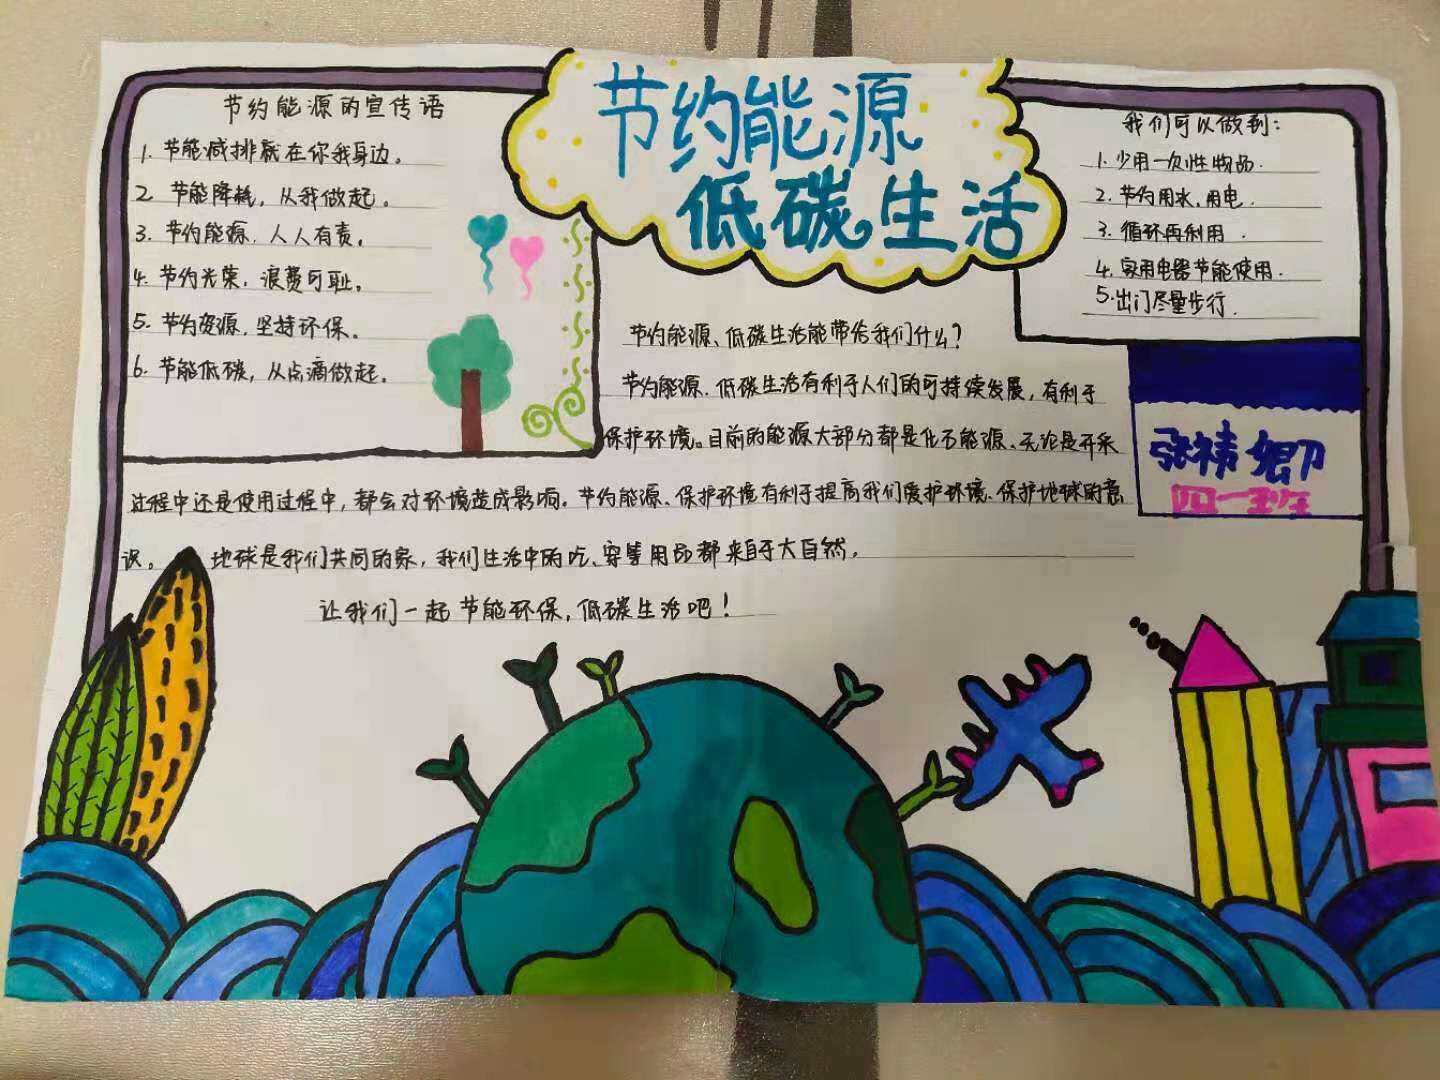 节约能源
低碳生活
节约能源的宣传语
1. 节能减排就在你我身边。
2 节能降耗，从我做起。
3. 节约能源，人人有责。
4. 节约光荣，浪费可耻。
5. 节约资源，坚持环保。
6. 节能低碳，从点滴做起。
我们可以做到：
1. 少用一次性物品.
2. 节约用水，用电.
3. 循环再利用.
4. 家用电器节能使用.
5. 出门尽量步行.
张祎卿
四一班
节约能源、低碳生活能带给我们什么？
节约能源、低碳生活有利于人们的可持续发展，有利于
保护环境。目前的能源大部分都是化石能源、无论是开采
过程中还是使用过程中，都会对环境造成影响。节约能源、保护环境有利于提高我们爱护环境、保护地球的意
识。 地球是我们共同的家，我们生活中的吃、穿等用品都来自于大自然。
让我们一起节能环保，低碳生活吧！